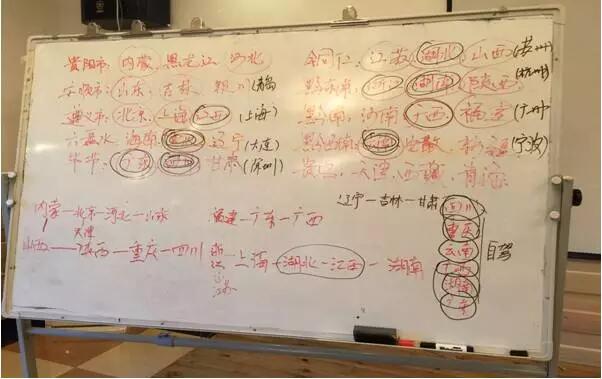 贵阳市: 内蒙 黑龙江 河北
铜仁: 江苏 湖北 山西 (苏州)
安顺市: 山东 吉林 (青岛)
黔东南: 浙江 湖南 (杭州)
遵义市: 北京 上海 江西 (上海)
黔南: 河南 广西 福建 (广州)
六盘水: 海南 辽宁 (大连)
黔西南: 云南 安徽 新疆 (宁波)
毕节: 广东 四川 甘肃 (深圳)
贵安: 天津 西藏 青海
内蒙—北京—河北—山东
天津
福建—广东—广西
辽宁—吉林—甘肃
山西—陕西—重庆—四川
浙江
江苏
上海—湖北—江西—湖南
四川
重庆
云南
广西
湖南
广东
自驾